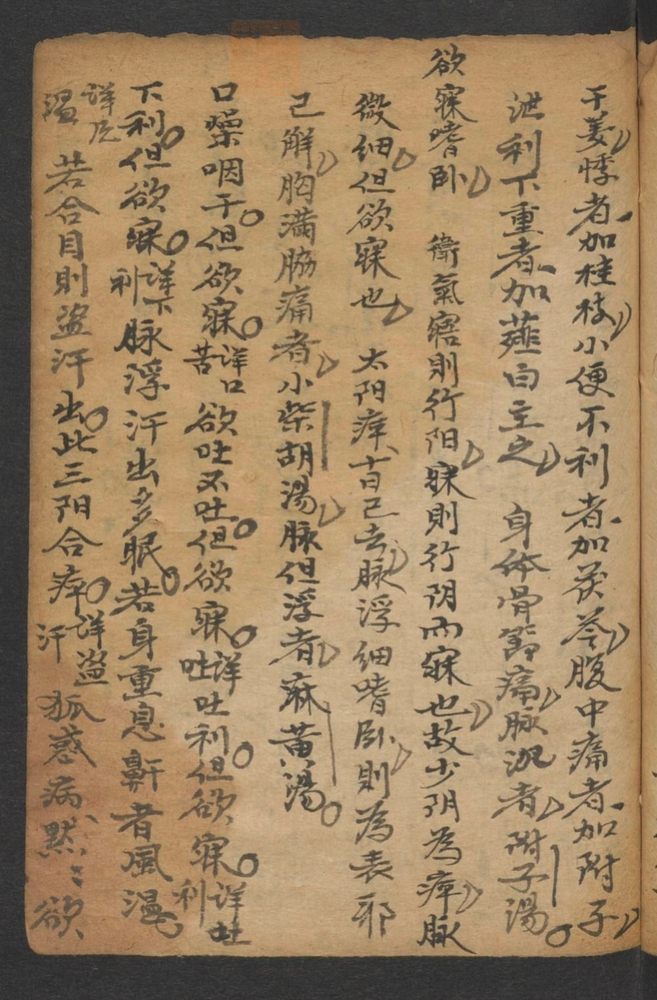 干姜悸者加桂枝小便不利者加茯苓腹中痛者加附子
泄利下重者加薤白主之　身体骨節痛脉沉者附子湯
欲寐嗜卧　衛氣寤則行阳寐則行阴而寐也故少阴為病脉
微细但欲寐也　太阳病十日已去脉浮细嗜卧則為表邪
已解胸满胁痛者小柴胡湯脉但浮者麻黄湯
口燥咽干但欲寐詳口苦欲吐不吐但欲寐詳吐吐利但欲寐詳吐利
下利但欲寐詳下利脉浮汗出多眠若身重息鼾者風温
詳風温若合目則盗汗出此三阳合病詳盗汗狐惑病默〻欲